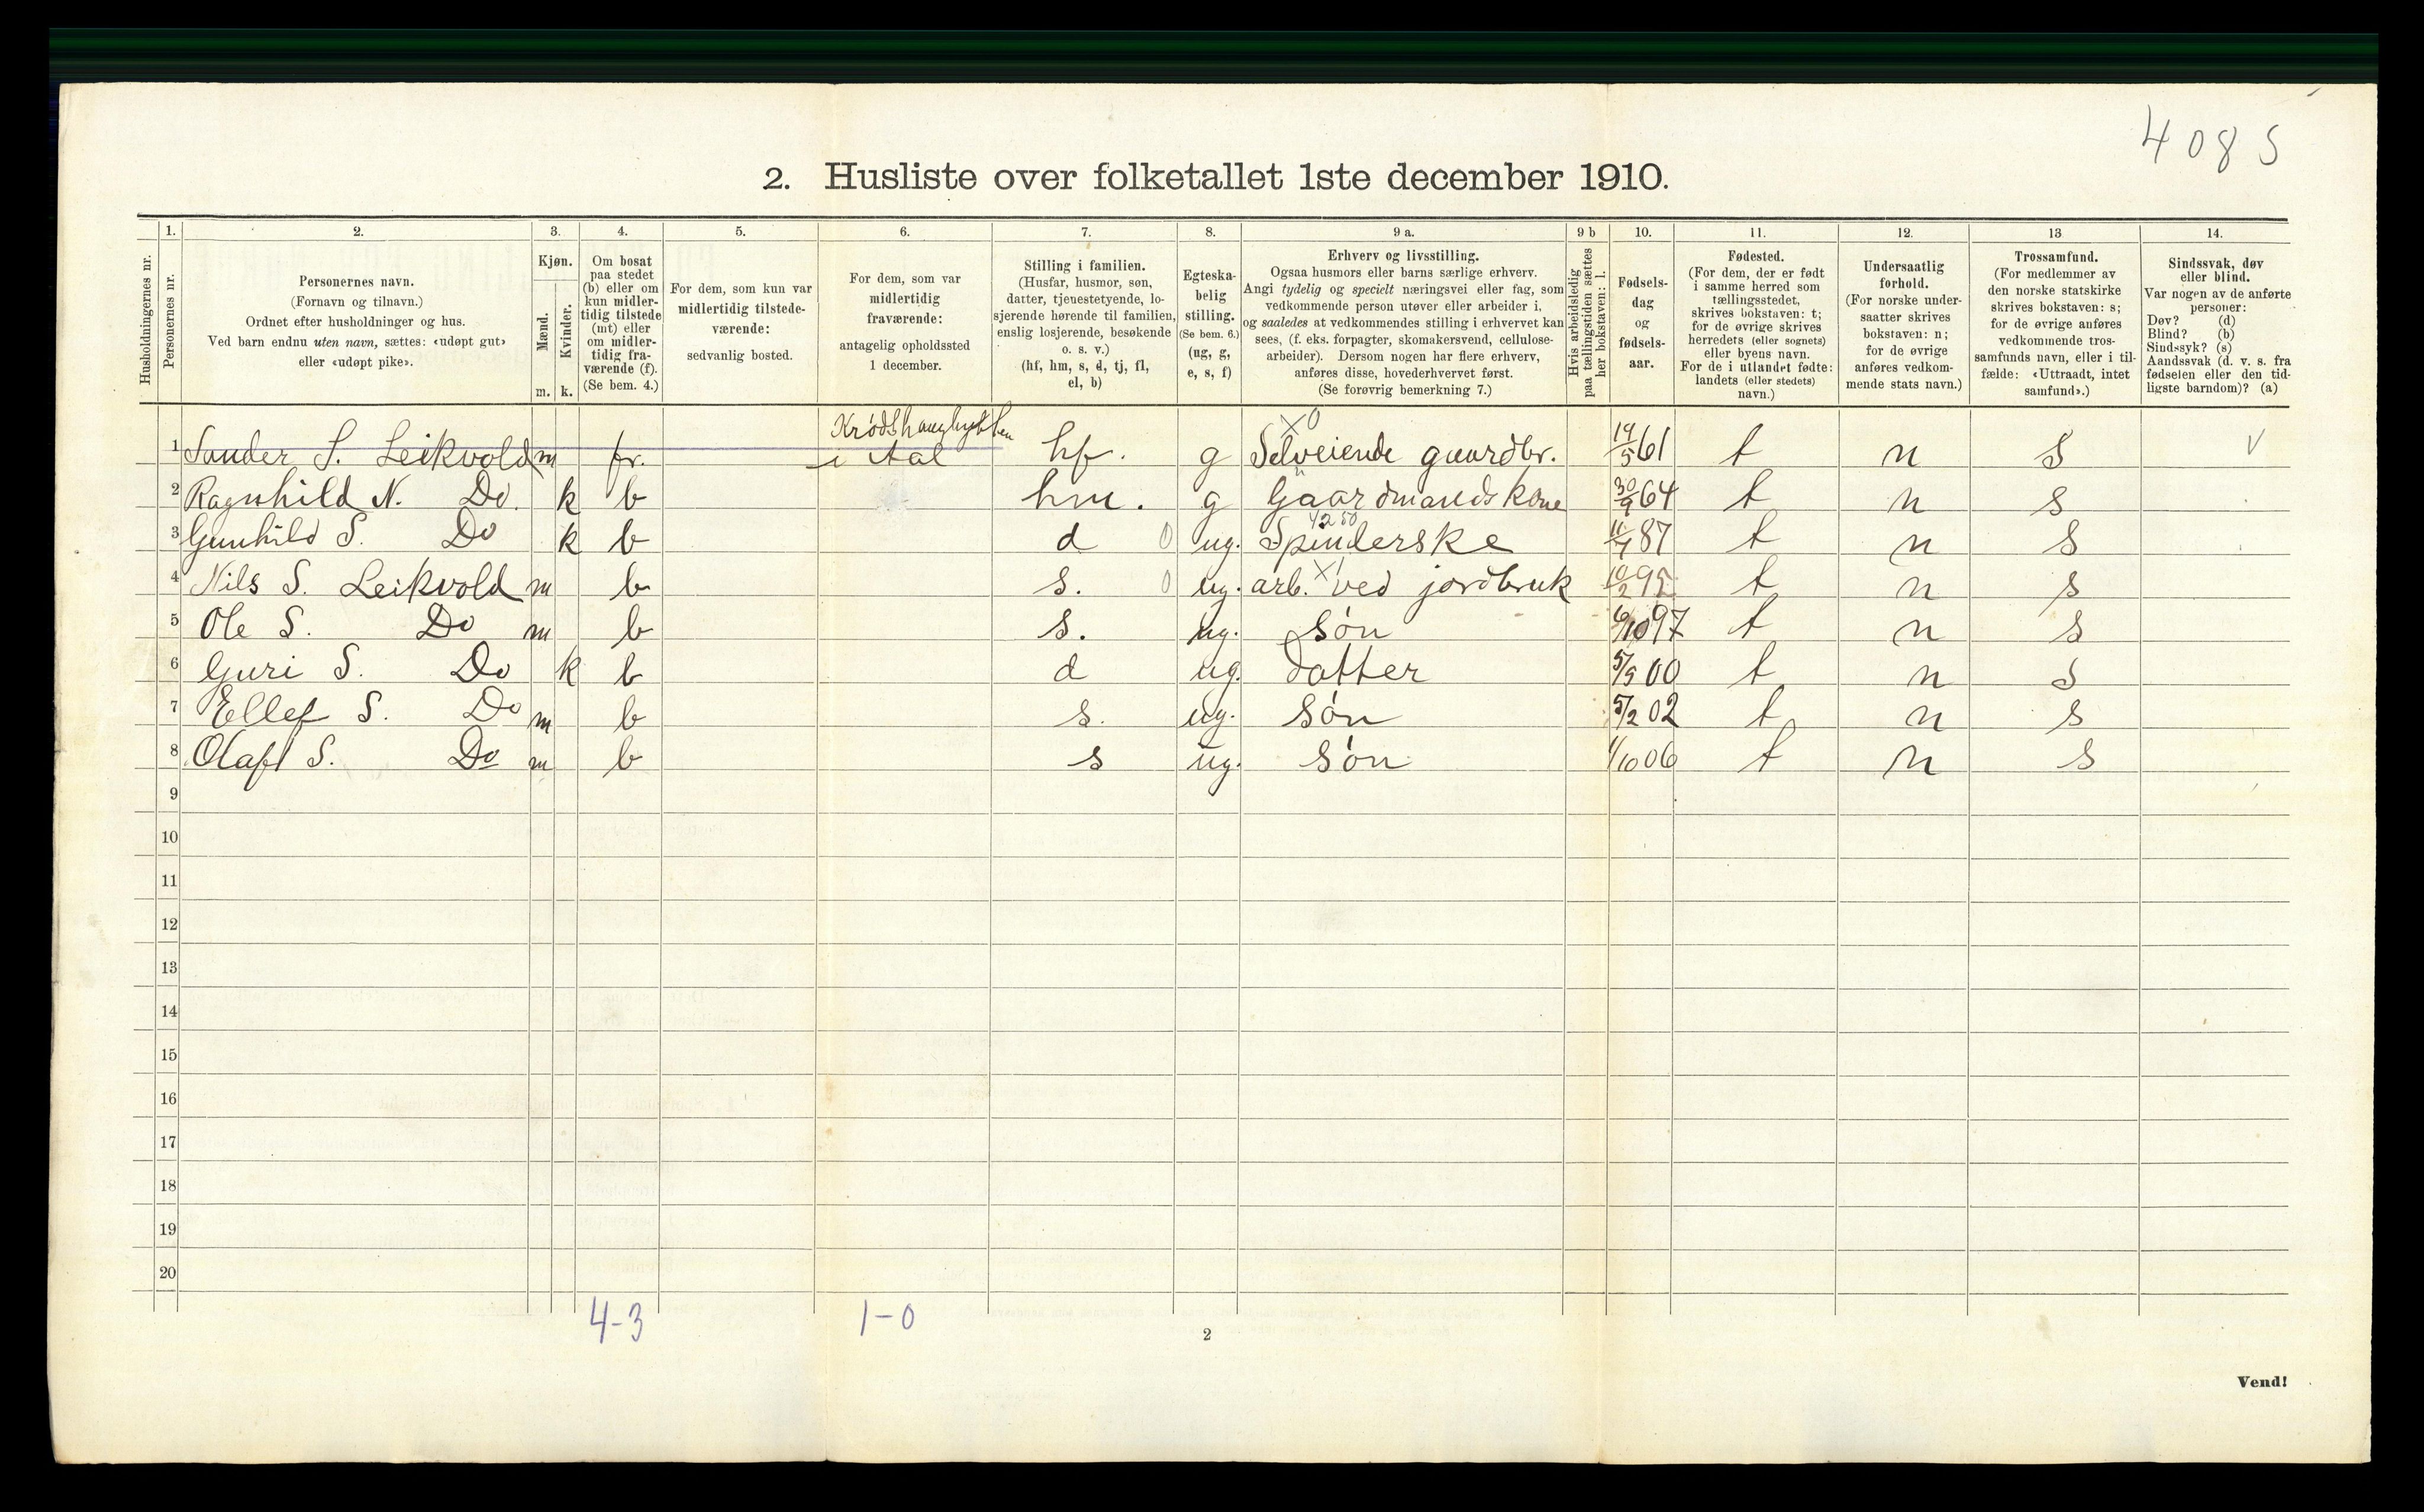 4085
2. Husliste over folketallet 1ste december 1910.
1. 2. 3. 4. 5. 6. 7. 8. 9 a. 9 b 10. 11. 12. 13 14.
Husholdningernes nr.
Personernes nr.
Personernes navn.
(Fornavn og tilnavn.)
Ordnet efter husholdninger og hus.
Ved barn endnu uten navn, sættes: «udøpt gut»
eller «udøpt pike».
Kjøn.
Mænd.
Kvinder.
m. k.
Om bosat
paa stedet
(b) eller om
kun midler-
tidig tilstede
(mt) eller
om midler-
tidig fra-
værende (f).
(Se bem. 4.)
For dem, som kun var
midlertidig tilstede-
værende:
sedvanlig bosted.
For dem, som var
midlertidig
fraværende:
antagelig opholdssted
1 december.
Stilling i familien.
(Husfar, husmor, søn,
datter, tjenestetyende, lo-
sjerende hørende til familien,
enslig losjerende, besøkende
o. s. v.)
(hf, hm, s, d, tj, fl,
el, b)
Egteska-
belig
stilling.
(Se bem. 6.)
(ug, g,
e, s, f)
Erhverv og livsstilling.
Ogsaa husmors eller barns særlige erhverv.
Angi tydelig og specielt næringsvei eller fag, som
vedkommende person utøver eller arbeider i,
og saaledes at vedkommendes stilling i erhvervet kan
sees, (f. eks. forpagter, skomakersvend, cellulose-
arbeider). Dersom nogen har flere erhverv,
anføres disse, hovederhvervet først.
(Se forøvrig bemerkning 7.)
Hvis arbeidsledig
paa tællingstiden sættes
her bokstaven: l.
Fødsels-
dag
og
fødsels-
aar.
Fødested.
(For dem, der er født
i samme herred som
tællingsstedet,
skrives bokstaven: t;
for de øvrige skrives
herredets (eller sognets)
eller byens navn.
For de i utlandet fødte:
landets (eller stedets)
navn.)
Undersaatlig
forhold.
(For norske under-
saatter skrives
bokstaven: n;
for de øvrige
anføres vedkom-
mende stats navn.)
Trossamfund.
(For medlemmer av
den norske statskirke
skrives bokstaven: s;
for de øvrige anføres
vedkommende tros-
samfunds navn, eller i til-
fælde: «Uttraadt, intet
samfund».)
Sindssvak, døv
eller blind.
Var nogen av de anførte
personer:
Døv? (d)
Blind? (b)
Sindssyk? (s)
Aandssvak (d. v. s. fra
fødselen eller den tid-
ligste barndom)? (a)
X0
1 Sander S. Leikvold m fr. i Aal hf. g Selveiende gaardbr. 19/5 61 t n S V
2 Ragnhild N. Do. k b hm. g Gaardmandskone 30/9 64 t n s
4250
3 Gunhild S. Do k b d 0 ug. Spinderske 87 t n S
4 Nils S. Leikvold m b s. 0 ug. arb. ved jordbruk 10/2 95 t n s
5 Ole S. Do m b s. ug. søn 6/10 97 t n s
6 Guri S. Do k b d ug. datter 5/9 00 t n s
7 Ellef S. Do m b s. ug. søn 5/2 02 t n s
8 Olaf S. Do m b s ug. søn 1/10 06 t n s
9
10
11
12
13
14
15
16
17
18
19
20
4-3 1-0
2
Vend!